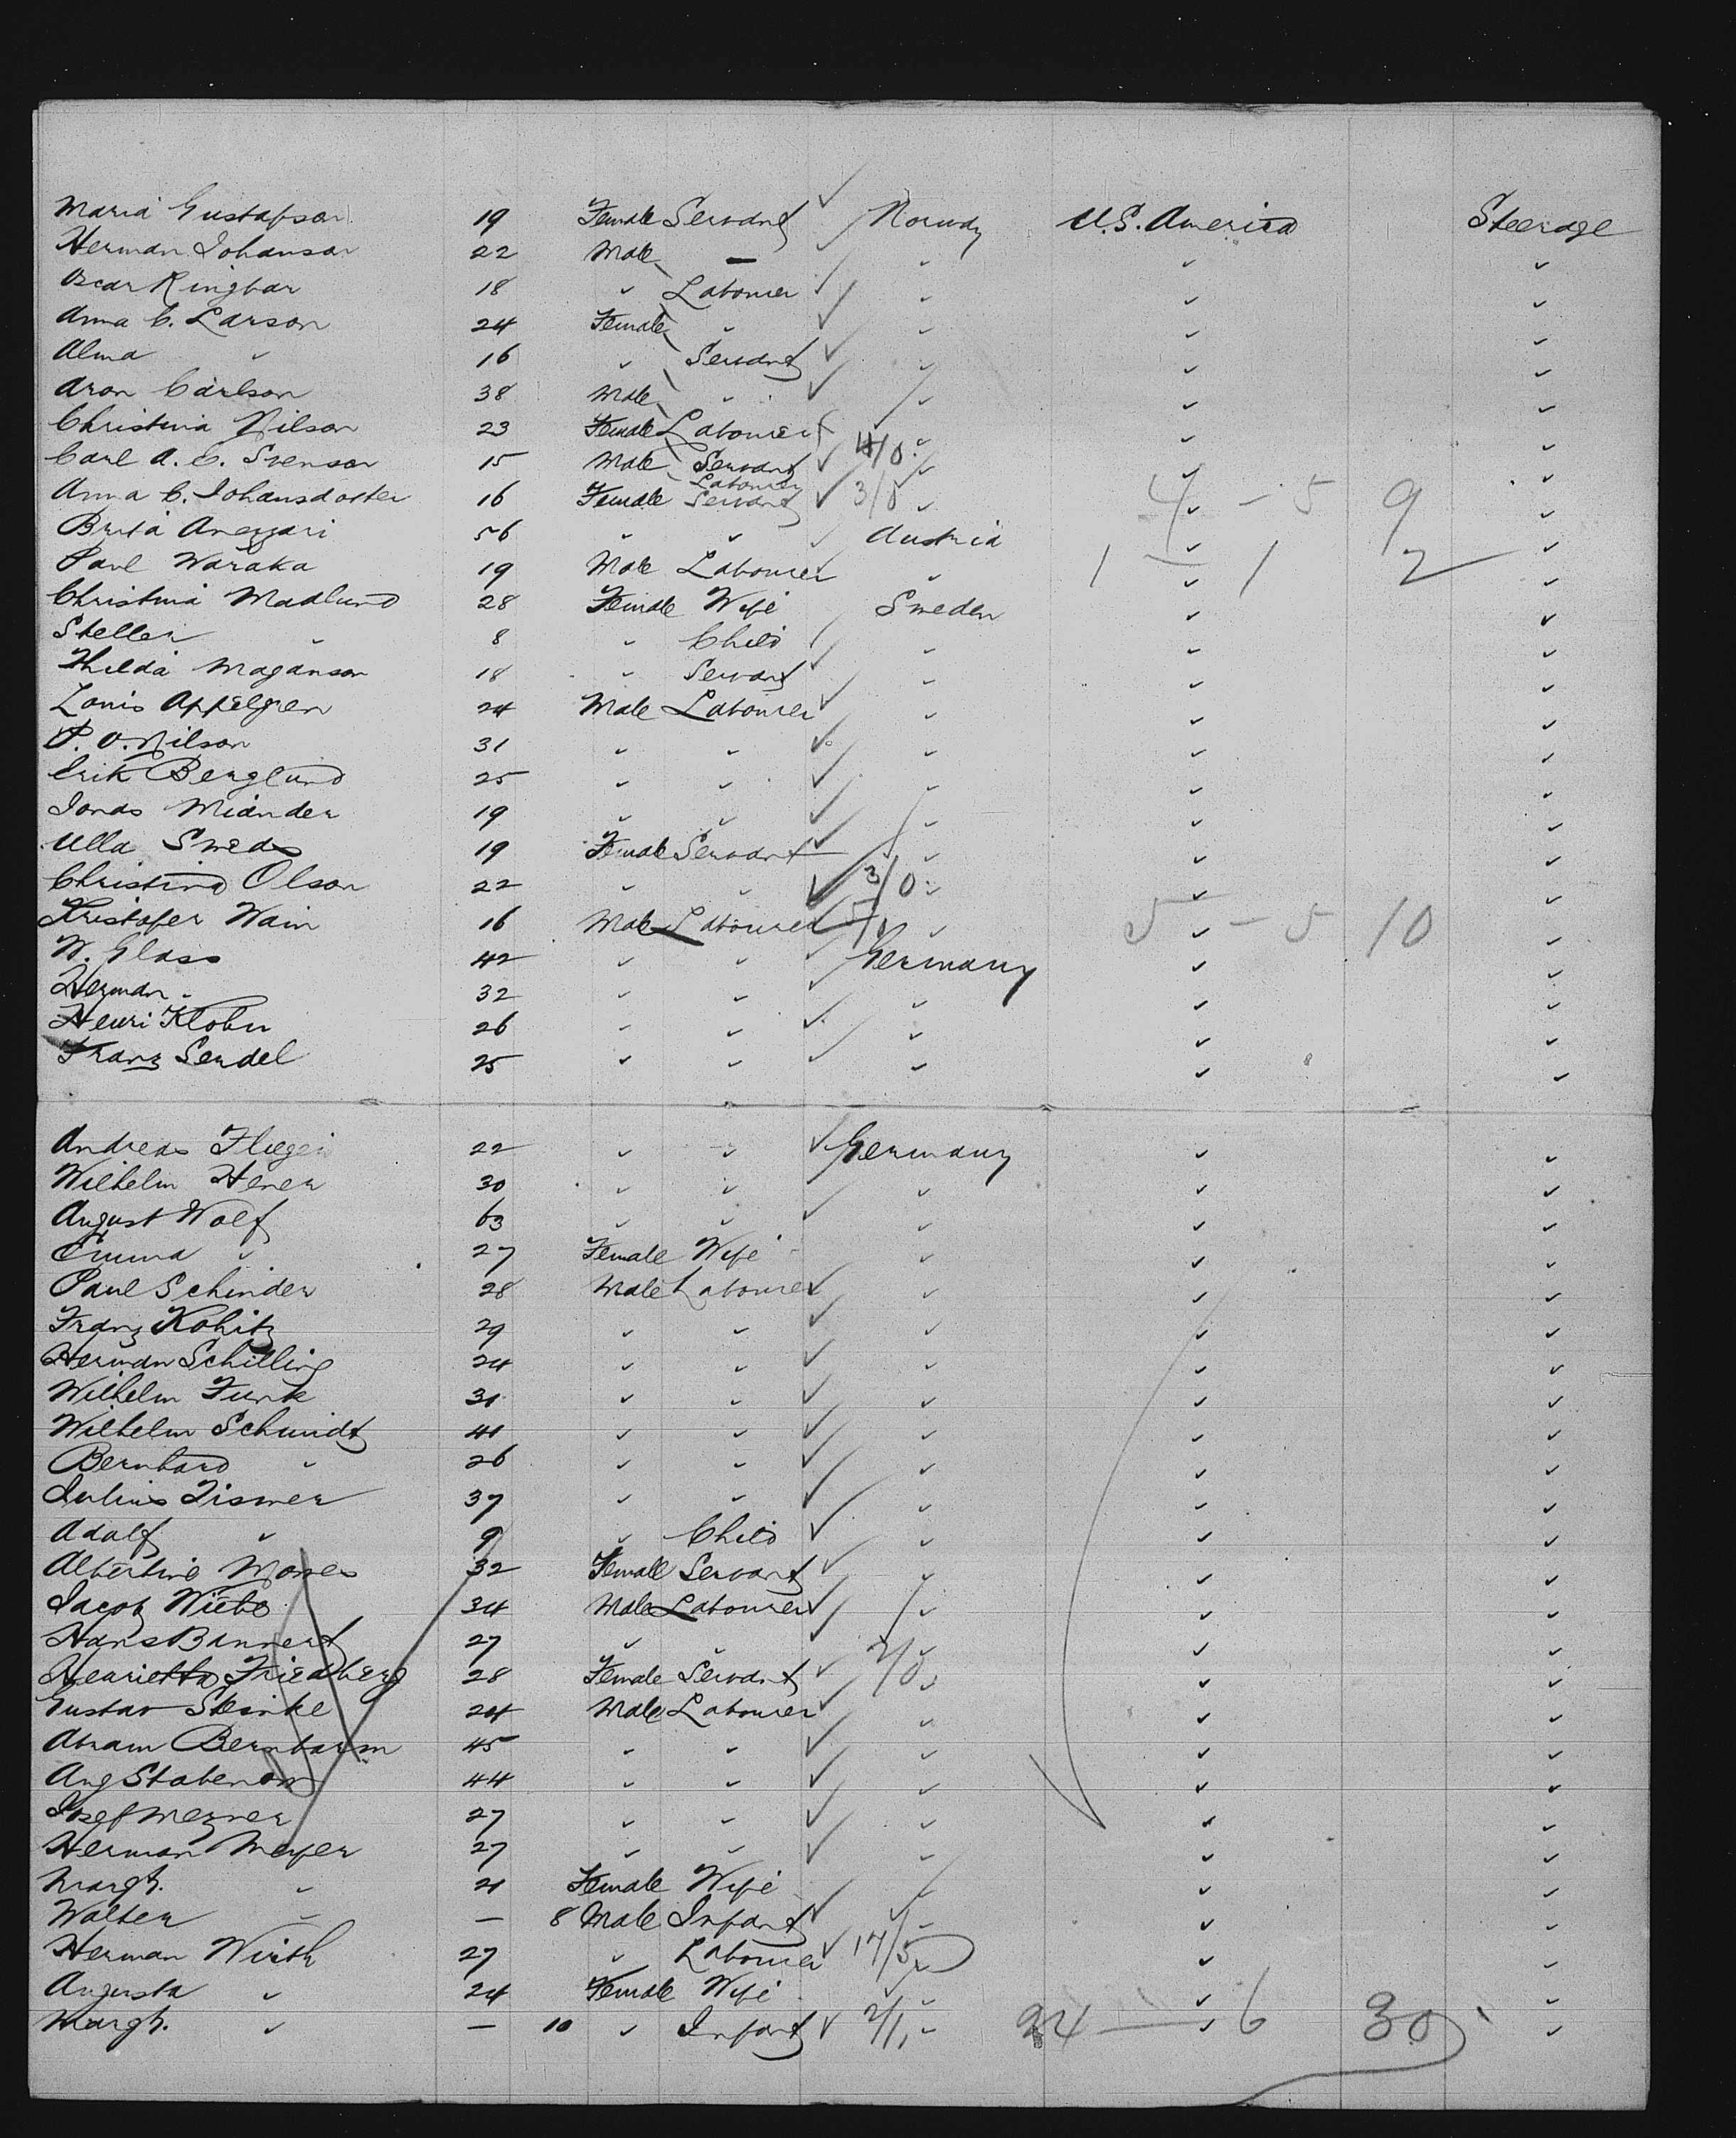 Maria Gustafson 19 Female Servant ✓ Norway U.S. America Steerage
Herman Johanson 22 Male — ✓ ✓ ✓ ✓
Oscar Ringbar 18 ✓ Labourer ✓ ✓ ✓ ✓
Anna C. Larson 24 Female ✓ ✓ ✓ ✓ ✓
Alma ✓ 16 ✓ Servant ✓ ✓ ✓ ✓
Aron Carlson 38 Male ✓ ✓ ✓ ✓ ✓
Christina Nilson 23 Female Labourer ✓ ✓ ✓
Carl A. C. Svenson 15 Male Servant ✓ 4/0 ✓ ✓ ✓
Labourer
Anna C. Johansdotter 16 Female Servant ✓ 3/0 ✓ 4 - 5 9 ✓
Brita 56 ✓ ✓ ✓ Austria ✓ ✓
Paul Waraka 19 Male Labourer ✓ ✓ 1 — 1 2 ✓
Christina Madlund 28 Female Wife Sweden ✓ ✓
Steller ✓ 8 ✓ Child ✓ ✓ ✓
Thilda Maganson 18 ✓ Servant ✓ ✓ ✓ ✓
Louis Appelgren 24 Male Labourer ✓ ✓ ✓ ✓
P. O. Nilson 31 ✓ ✓ ✓ ✓ ✓ ✓
Erik Berglund 25 ✓ ✓ ✓ ✓ ✓ ✓
Jonas Miander 19 ✓ ✓ ✓ ✓ ✓ ✓
Ulla Sweds 19 Female Servant ✓ ✓ ✓ ✓
Christina Olson 22 ✓ ✓ ✓ 3/0 ✓ ✓ ✓
Kristofer Wain 16 Male Labourer ✓ 5 - 5 10 ✓
W. Glass 42 ✓ ✓ ✓ Germany ✓ ✓
Herman ✓ 32 ✓ ✓ ✓ ✓ ✓ ✓
Henri Klohn 26 ✓ ✓ ✓ ✓ ✓ ✓
Franz Sendel 25 ✓ ✓ ✓ ✓ ✓ ✓
Andreas 22 ✓ ✓ ✓ Germany ✓ ✓
Wilhelm Hener 30 ✓ ✓ ✓ ✓ ✓ ✓
August Wolf 63 ✓ ✓ ✓ ✓ ✓ ✓
Emma ✓ 27 Female Wife ✓ ✓ ✓
Paul Schinder 28 Male Labourer ✓ ✓ ✓ ✓
Franz Kohitz 29 ✓ ✓ ✓ ✓ ✓ ✓
Herman Schilling 24 ✓ ✓ ✓ ✓ ✓ ✓
Wilhelm Funk 31 ✓ ✓ ✓ ✓ ✓ ✓
Wilhelm Schmidt 41 ✓ ✓ ✓ ✓ ✓ ✓
Bernhard ✓ 26 ✓ ✓ ✓ ✓ ✓ ✓
Julius Zismer 37 ✓ ✓ ✓ ✓ ✓ ✓
Adolf ✓ 9 ✓ Child ✓ ✓ ✓ ✓
Albertine 32 Female Servant ✓ ✓ ✓ ✓
Jacob Wiebe 34 Male Labourer ✓ ✓ ✓ ✓
Hans Bannert 27 ✓ ✓ ✓ ✓ ✓ ✓
Henrietta Friedberg 28 Female Servant ✓ 2/0 ✓ ✓ ✓
Gustav Steinke 24 Male Labourer ✓ ✓ ✓ ✓
Abram Bernbaum 45 ✓ ✓ ✓ ✓ ✓ ✓
Aug Stabenow 44 ✓ ✓ ✓ ✓ ✓ ✓
Josef Mezner 27 ✓ ✓ ✓ ✓ ✓ ✓
Herman Meyer 27 ✓ ✓ ✓ ✓ ✓ ✓
Margt. ✓ 21 Female Wife ✓ ✓ ✓
Walter ✓ — 8 Male Infant ✓ ✓ ✓ ✓
Herman Wirth 27 ✓ Labourer ✓ 17/5 ✓ ✓ ✓
Augusta ✓ 24 Female Wife ✓ ✓ ✓
Margt. ✓ — 10 ✓ Infant ✓ 2/1 ✓ 24 — 6 30 ✓